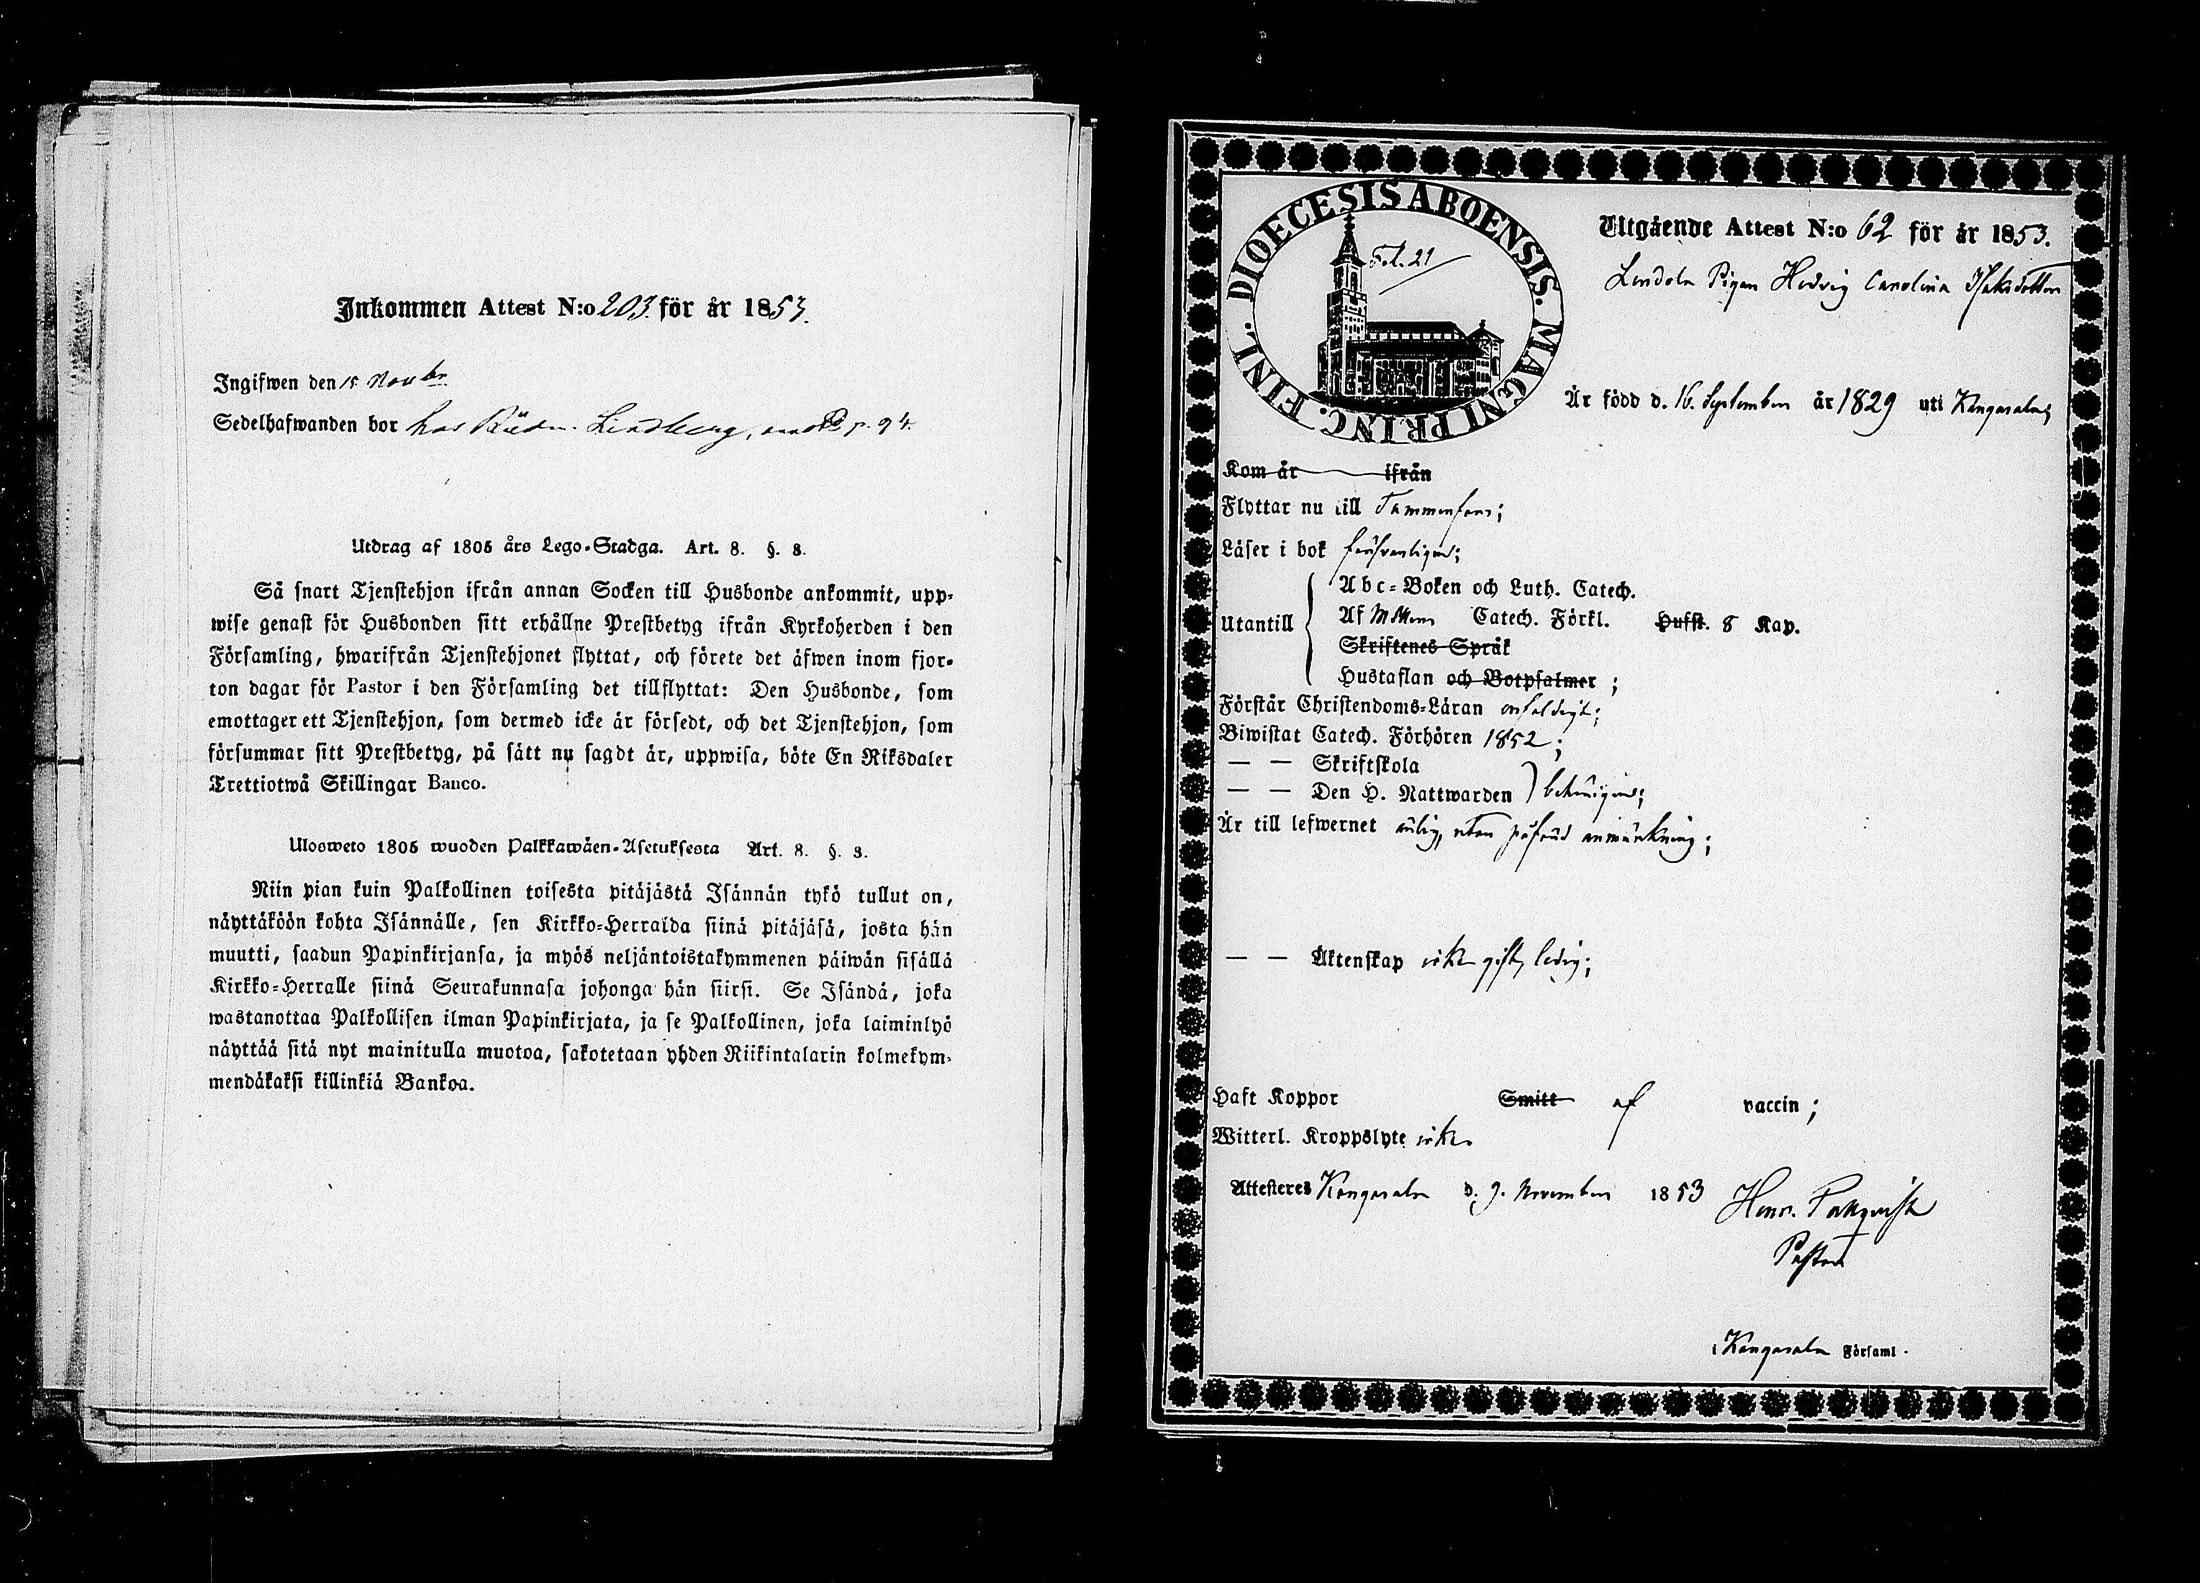 Inkommen Attest N:o 203. för år 1853.
Ingifwen den 15 Novbr
Sedelhafwanden bor hos Rådm. Lindberg, p. 94.
Utdrag af 1805 års Lego-Stadga. Art. 8. §. 8.
Så snart Tjenstehjon ifrån annan Socken till Husbonde ankommit, upp-
wise genast för Husbonden sitt erhållne Prestbetyg ifrån Kyrkoherden i den
Församling, hwarifrån Tjenstehjonet flyttat, och förete det äfwen inom fjor-
ton dagar för Pastor i den Församling det tillflyttat: Den Husbonde, som
emottager ett Tjenstehjon, som dermed icke är försedt, och det Tjenstehjon, som
försummar sitt Prestbetyg, på sätt nu sagdt är, uppwisa, böte En Riksdaler
Trettiotwå Skillingar Banco.
Ulosweto 1805 wuoden Palkkawäen-Asetuksesta Art. 8. §. 8.
Niin pian kuin Palkollinen toisesta pitäjästä Isännän tykö tullut on,
näyttäköön kohta Isännälle, sen Kirkko-Herralda siinä pitäjäsä, josta hän
muutti, saadun Papinkirjansa, ja myös neljäntoistakymmenen päiwän sisällä
Kirkko-Herralle siinä Seurakunnasa johonga hän siirsi. Se Isändä, joka
wastanottaa Palkollisen ilman Papinkirjata, ja se Palkollinen, joka laiminlyö
näyttää sitä nyt mainitulla muotoa, sakotetaan yhden Riikintalarin kolmekym-
mendäkaksi killinkiä Bankoa.
DIOECESIS ABOENSIS. MAGNI PRINC. FINL.
Fol. 21
Utgående Attest N:o 62 för år 1853.
Pigan Hedvig Carolina Isaksdotter
Är född d. 16. September år 1829 uti Kangasala;
Kom år ifrån
Flyttar nu till Tammerfors;
Läser i bok försvarligen;
Abc-Boken och Luth. Catech.
Utantill Af Catech. Förkl. Hufst. 8 Kap.
Skriftenes Språk
Hustaflan och Botpsalmer ;
Förstår Christendoms-Läran enfaldigt;
Biwistat Catech. Förhören 1852;
— — Skriftskola
— — Den H. Nattwarden behörigen;
Är till lefwernet ärlig, utan påförd anmärkning;
— — Äktenskap icke gift, ledig;
Haft Koppor Smitt af vaccin ;
Witterl. Kroppslyte icke.
Attesteres Kangasala d. 9. November 1853 Henr.
Pastor
i Kangasala Församl.